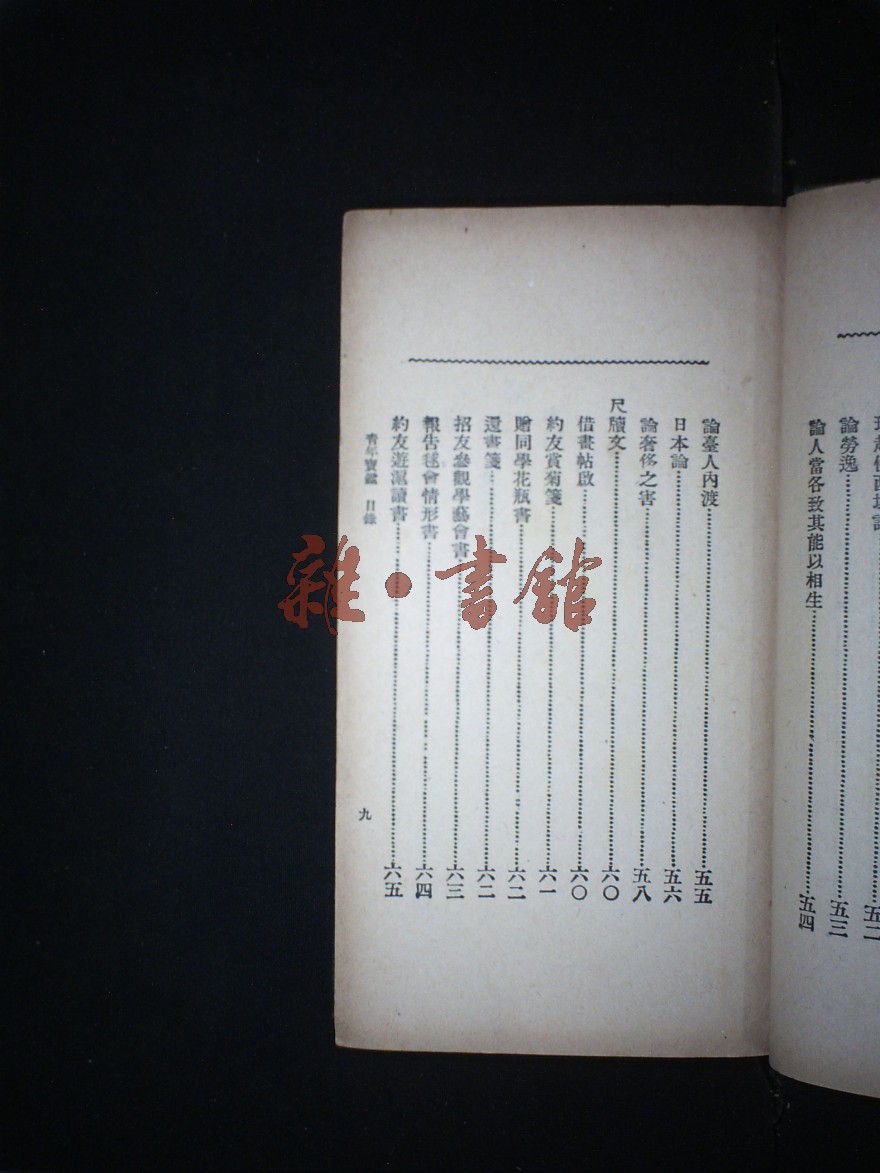 論勞逸……五三
論人當各致其能以相生……五四
論臺人內渡……五五
日本論……五六
論奢侈之害……五八
尺牘文……六〇
借畫帖啟……六〇
約友賞菊箋……六一
贈同學花瓶書……六二
還書箋……六二
招友參觀學藝會書……六三
報告毬會情形書……六四
約友遊滬讀書……六五
青年寶鑑 目錄
九
雜·書館